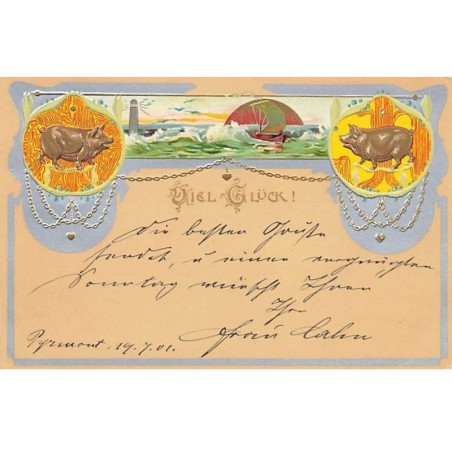 Viel Glück!
Die besten Grüße
sendet, u einen vergnügten
Sonntag wünscht Ihnen
Ihr
Cahn
Pyrmont, 19.7.01.